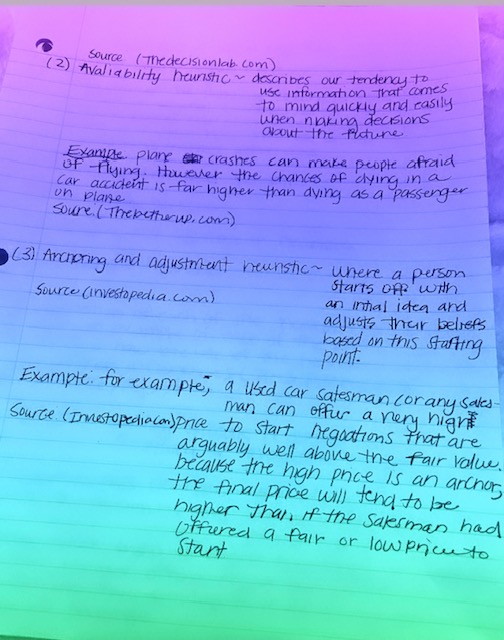 Source (Thedecisionlab.com)
(2) Avaliability heuristic ~ describes our tendency to
use information that comes
to mind quickly and easily
when making decisions
about the future
Example plane crashes can make people afraid
of flying. However the chances of dying in a
car accident is far higher than dying as a passenger
on plane
Soure. (Thebetterup.com)
(3) Anchoring and adjustment heuristic ~ where a person
starts off with
Source (investopedia.com)
an intial idea and
adjusts their beliefs
based on this starting
point.
Example: for example, a used car salesman (or any sales-
man can offer a very high
Source. (Investopedia.com) price to start negoations that are
arguably well above the fair value.
because the high price is an anchor,
the final price will tend to be
higher than if the salesman had
offered a fair or low price to
start